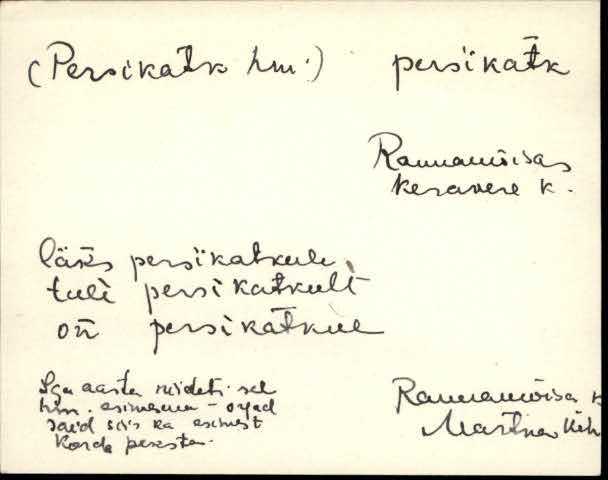 (Persikatk hm.) persikatk
Rannamõisas
Keravere k.
läks persikatkule,
tuli persikatkult
on persikatkul
Iga aasta niideti see
hm. esimesena – ojad
said siis ka esimest
korda pesesta.
Rannamõisa k
Martna khk